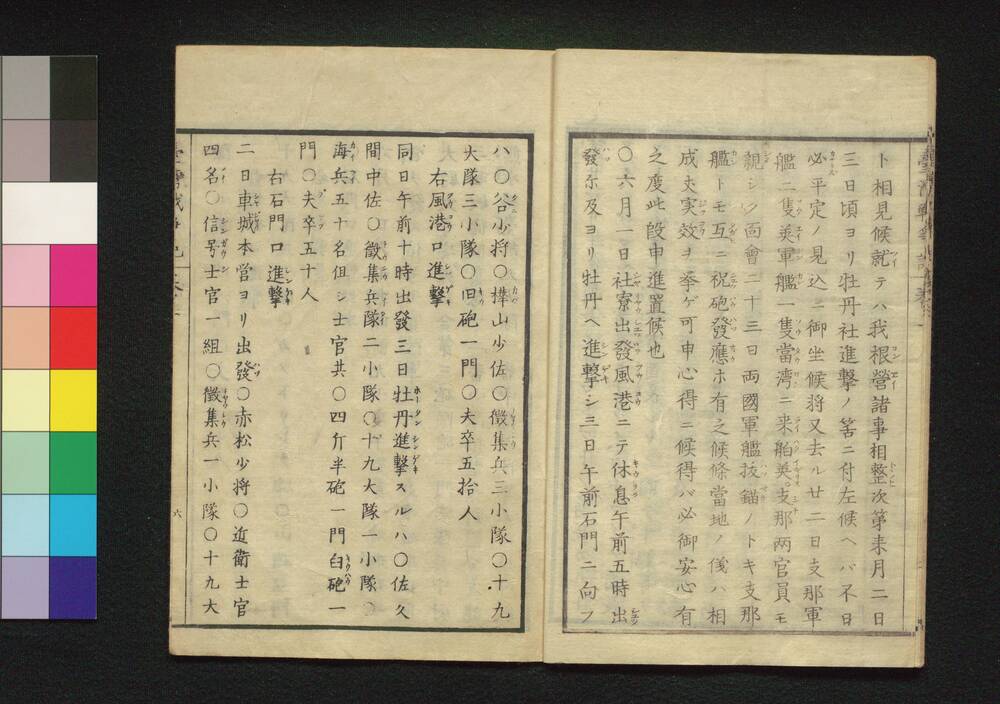 ト相見候就テハ我根營諸事相整次第来月二日
三日頃ヨリ牡丹社進撃ノ筈ニ付左候ヘバ不日
必平定ノ見込ニ御坐候将又去ル廿二日支那軍
艦二隻英軍艦一隻當湾ニ来舶英支那両官員モ
親シク面會二十三日両國軍艦抜錨ノトキ支那
艦トモ互ニ祝砲發應ホ有之候條當地ノ儀ハ相
成丈実效ヲ奉ゲ可申心得ニ候得バ必御安心有
之度此段申進置候也
〇六月一日社寮出發風港ニテ休息午前五時出
發尓及ヨリ牡丹ヘ進撃シ三日午前石門ニ向フ
八〇谷少将〇樺山少佐〇徴集兵三小隊〇十九
大隊三小隊〇旧砲一門〇夫卒五拾人
右風港口進撃
同日午前十時出發三日牡丹進撃スルハ〇佐久
間中佐〇徴集兵隊二小隊〇十九大隊一小隊〇
海兵五十名但シ士官共〇四斤半砲一門臼砲一
門〇夫卒五十人
右石門口進撃
二日車城本営ヨリ出發〇赤松少将〇近衛士官
四名〇信号士官一組〇徴集兵一小隊〇十九大
六